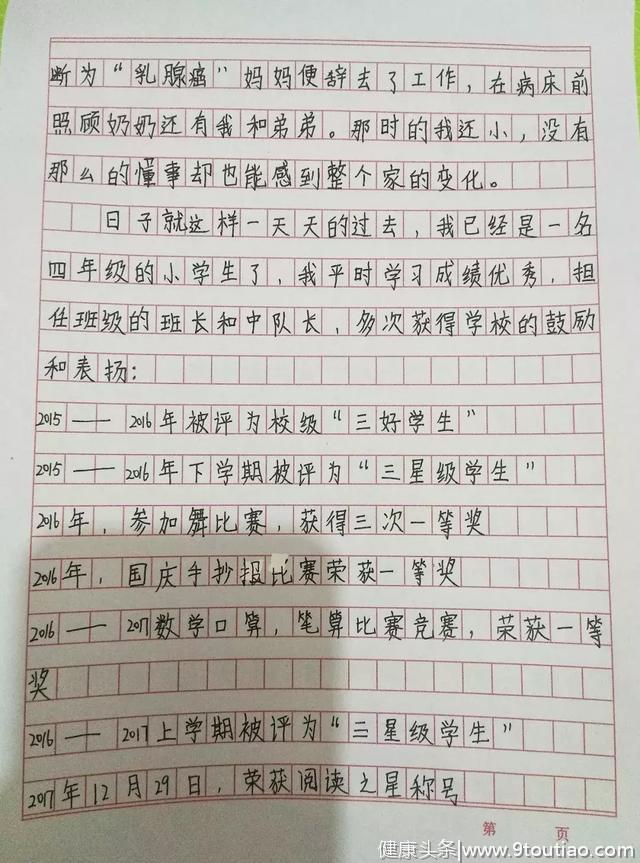 断为“乳腺癌”妈妈便辞去了工作，在病床前
照顾奶奶还有我和弟弟。那时的我还小，没有
那么的懂事却也能感到整个家的变化。
日子就这样一天天的过去，我已经是一名
四年级的小学生了，我平时学习成绩优秀，担
任班级的班长和中队长，多次获得学校的鼓励
和表扬：
2015——2016年被评为校级“三好学生”
2015——2016年下学期被评为“三星级学生”
2016年，参加舞比赛，获得三次一等奖
2016年，国庆手抄报比赛荣获一等奖
2016——2017数学口算，笔算比赛竞赛，荣获一等
奖
2016——2017上学期被评为“三星级学生”
2017年12月29日，荣获阅读之星称号
第 页
健康头条|www.9toutiao.com